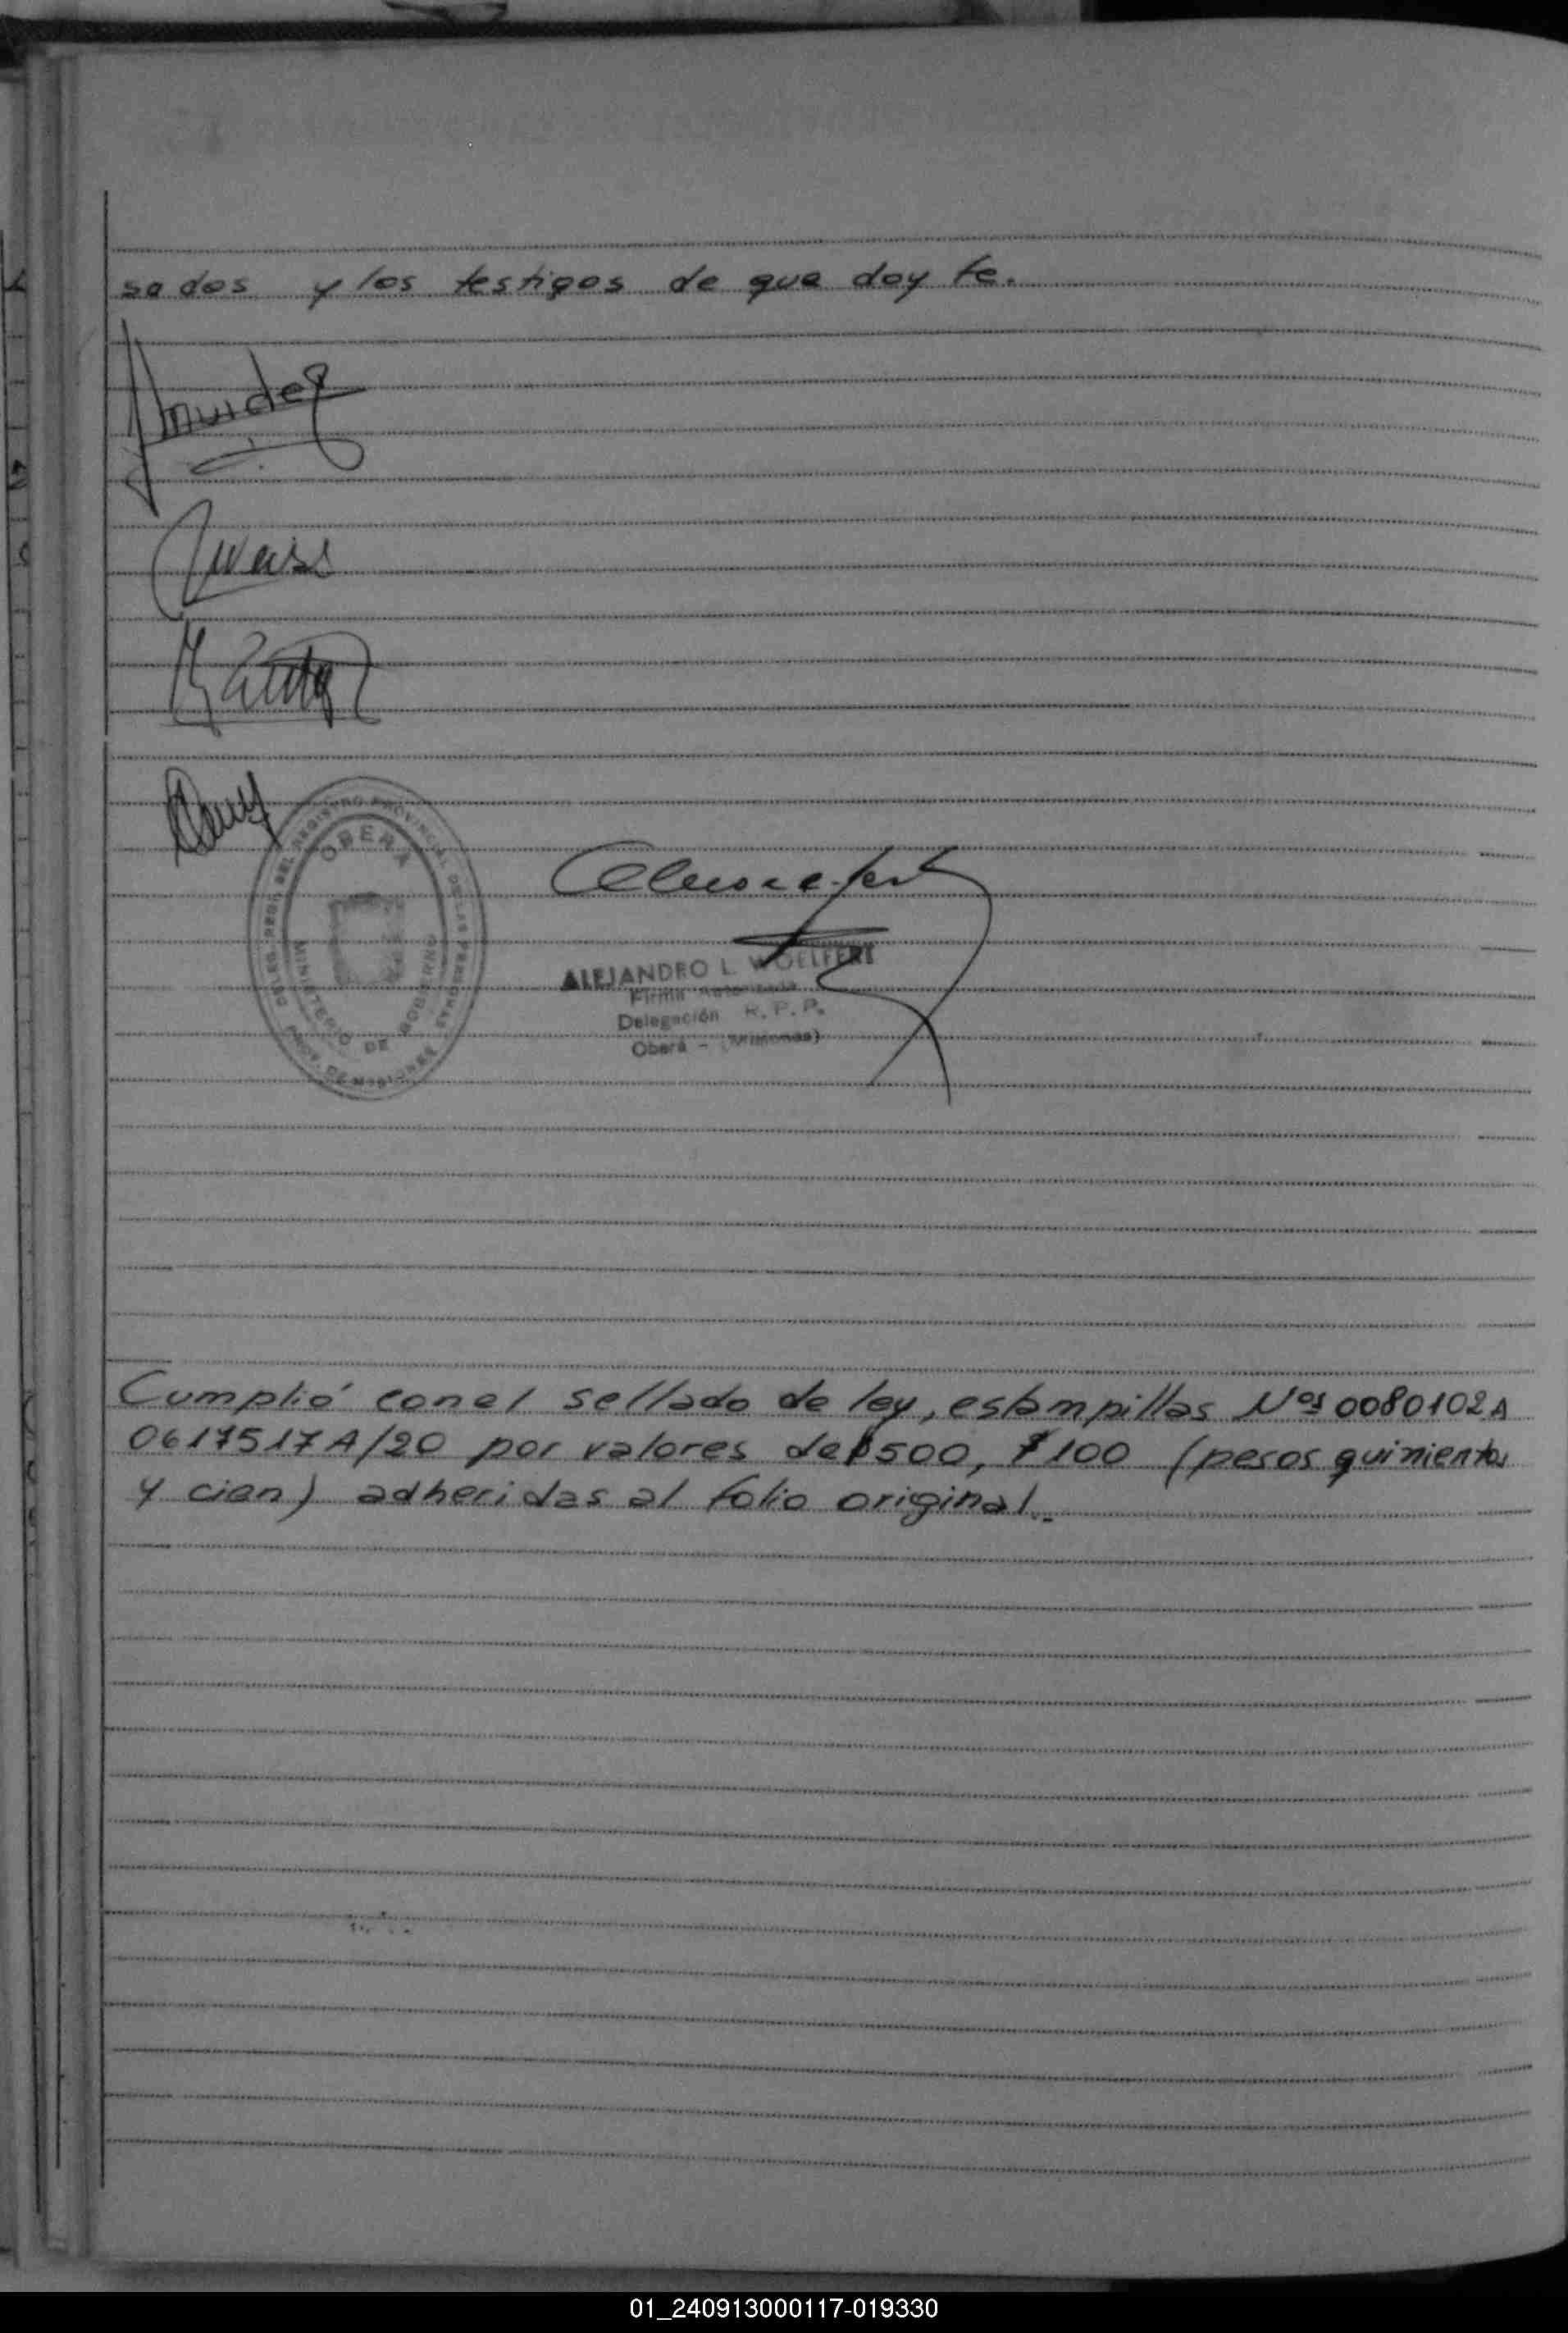 sados y los testigos de que doy fe.
OBERA
MINISTERIO DE GOBIERNO
DELEG. REG. DEL REGISTRO PROVINCIAL DE LAS PERSONAS
PROV. DE MISIONES
ALEJANDRO L. WOELFERT
Firma Autorizada
Delegación R. P. P.
Oberá - (Misiones)
Cumplió con el sellado de ley, estampillas Nos 0080102A
0617517A/20 por valores de $500, $100 (pesos quinientos
y cien) adheridas al folio original.-
01_240913000117-019330